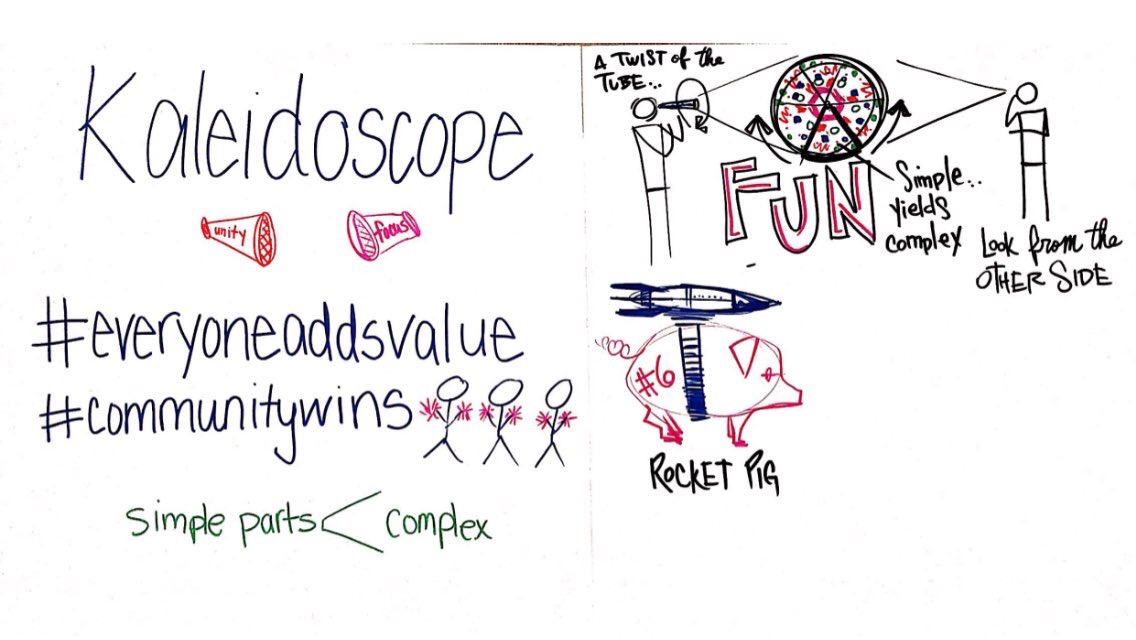 Kaleidoscope
unity
focus
#everyoneaddsvalue
#communitywins
simple parts < complex
A TWIST of the
TUBE...
FUN
Simple...
yields
complex
Look from the
OTHER SIDE
#6
ROCKET PIG